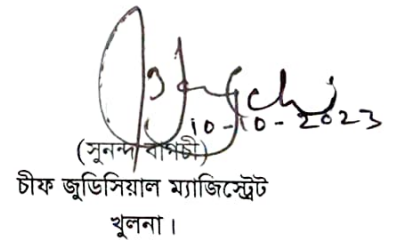 10-10-2023
(সুনন্দ বাগচী)
চীফ জুডিসিয়াল ম্যাজিস্ট্রেট
খুলনা।